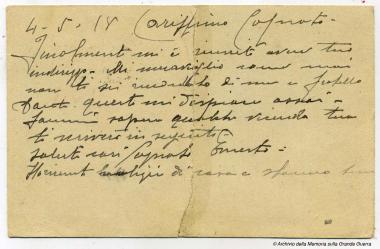 4-5-18 Carissimo Cognato -
Finalmente mi è riuscito avere tuo
indirizzo. Mi meraviglio come mai
non ti sei ricordato di me e fratello
questo mi dispiace assai -
Fammi sapere qualche vicenda tua
ti scriverò in seguito -
saluti cari Cognato Ernesto -
di casa e
© Archivio della Memoria sulla Grande Guerra